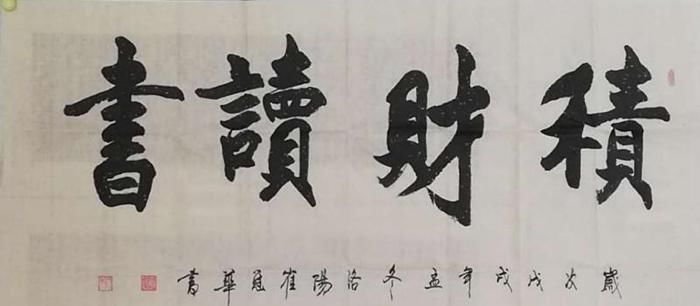 積財讀書
歲次戊戌年孟冬洛陽崔冠華書